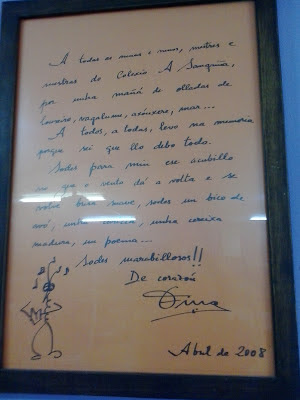 A todas as nenas e nenos, mestres e
mestras do Colexio A Sangriña,
por unha mañá de olladas de
loureiro, vagalume, azucre, mar...
A todos, a todas, levo na memoria
porque sei que llo debo todo.
Sodes para min ese acubillo
no que o vento dá a volta e se
volve brisa suave, sodes un bico de
avó, unha, unha cereixa
madura, un poema...
Sodes marabillosos!!
De corazón
Abril de 2008